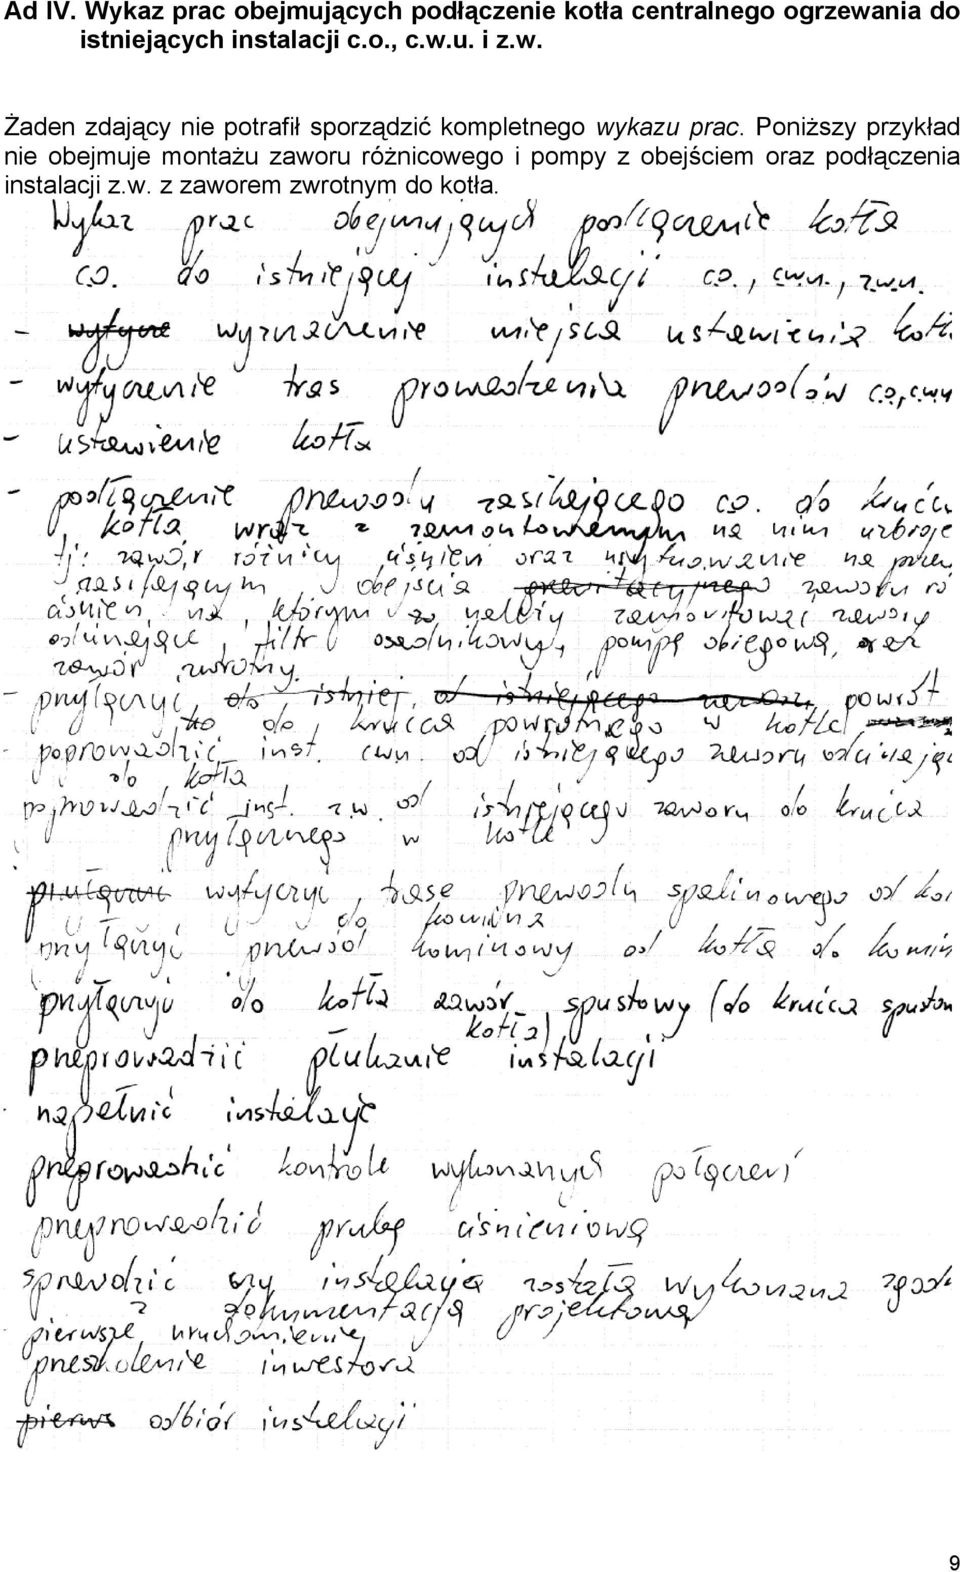 Ad IV. Wykaz prac obejmujących podłączenie kotła centralnego ogrzewania do
istniejących instalacji c.o., c.w.u. i z.w.
Żaden zdający nie potrafił sporządzić kompletnego wykazu prac. Poniższy przykład
nie obejmuje montażu zaworu różnicowego i pompy z obejściem oraz podłączenia
instalacji z.w. z zaworem zwrotnym do kotła.
Wykaz prac obejmujących podłączenie kotła
c.o. do istniejącej instalacji c.o., c.w.u., z.w.u.
- wytycze wyznaczenie miejsca ustawienia kotł
- wytyczenie tras prowadzenia przewodów c.o., c.wu
- ustawienie kotła
- podłączenie przewodu zasilającego co. do króćca
kotła wraz z zamontowanemym na nim uzbroje
tj: zawór różnicy ciśnień oraz usytuowanie na przew
zasilającym obejścia grawitacyjnego zaworu ró
ciśnień, na którym należy zamontować zawory
odcinające, filtr osadnikowy, pompę obiegową, oraz
zawór zwrotny.
- przyłączyć do istniej. od istniejącego powrót
do króćca powrotnego w kotle
- poprowadzić inst. cwu. od istniejącego zaworu odcinając
do kotła
poprowadzić inst. z.w. od istniejącego zaworu do króćca
przyłącznego w kotle
wytyczyć trasę przewodu spalinowego od kot
do komina
przyłączyć przewód kominowy od kotła do komin
przyłączyć do kotła zawór spustowy (do króćca spustow
kotła)
przeprowadzić płukanie instalacji
napełnić instalację
przeprowadzić kontrole wykonanych połączeń
przeprowadzić prubę ciśnieniową
sprawdzić czy instalacja została wykonana zgod
z dokumentacją projektową
pierwsze uruchomienie
przeszkolenie inwestora
pierws odbiór instalacji
9